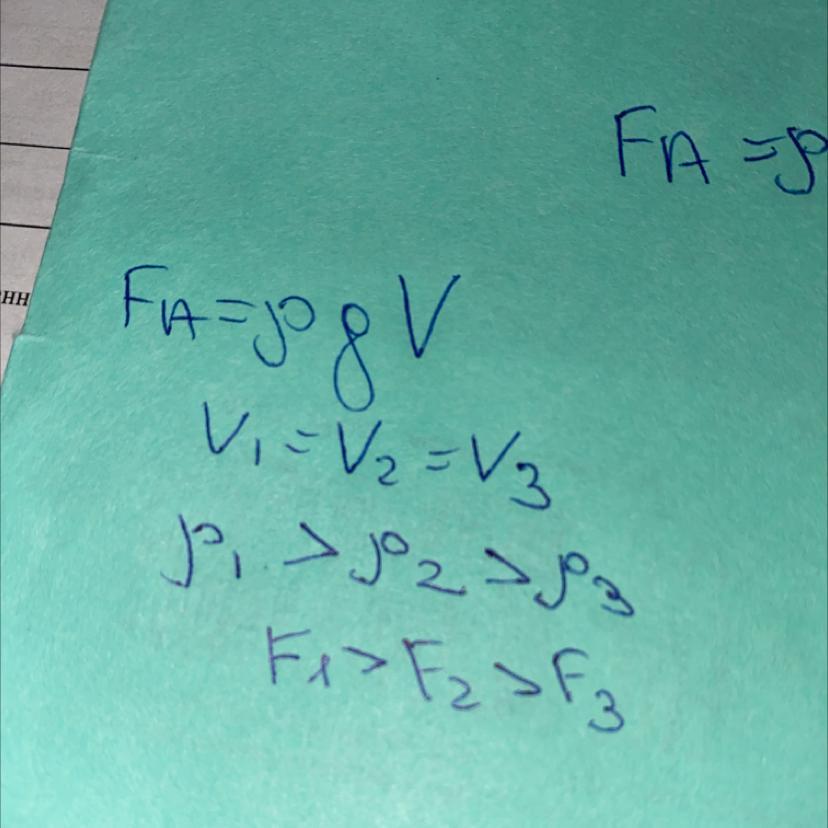 FA = ρ
нн
FA = ρ g V
V₁ = V₂ = V₃
ρ₁ > ρ₂ > ρ₃
F₁ > F₂ > F₃